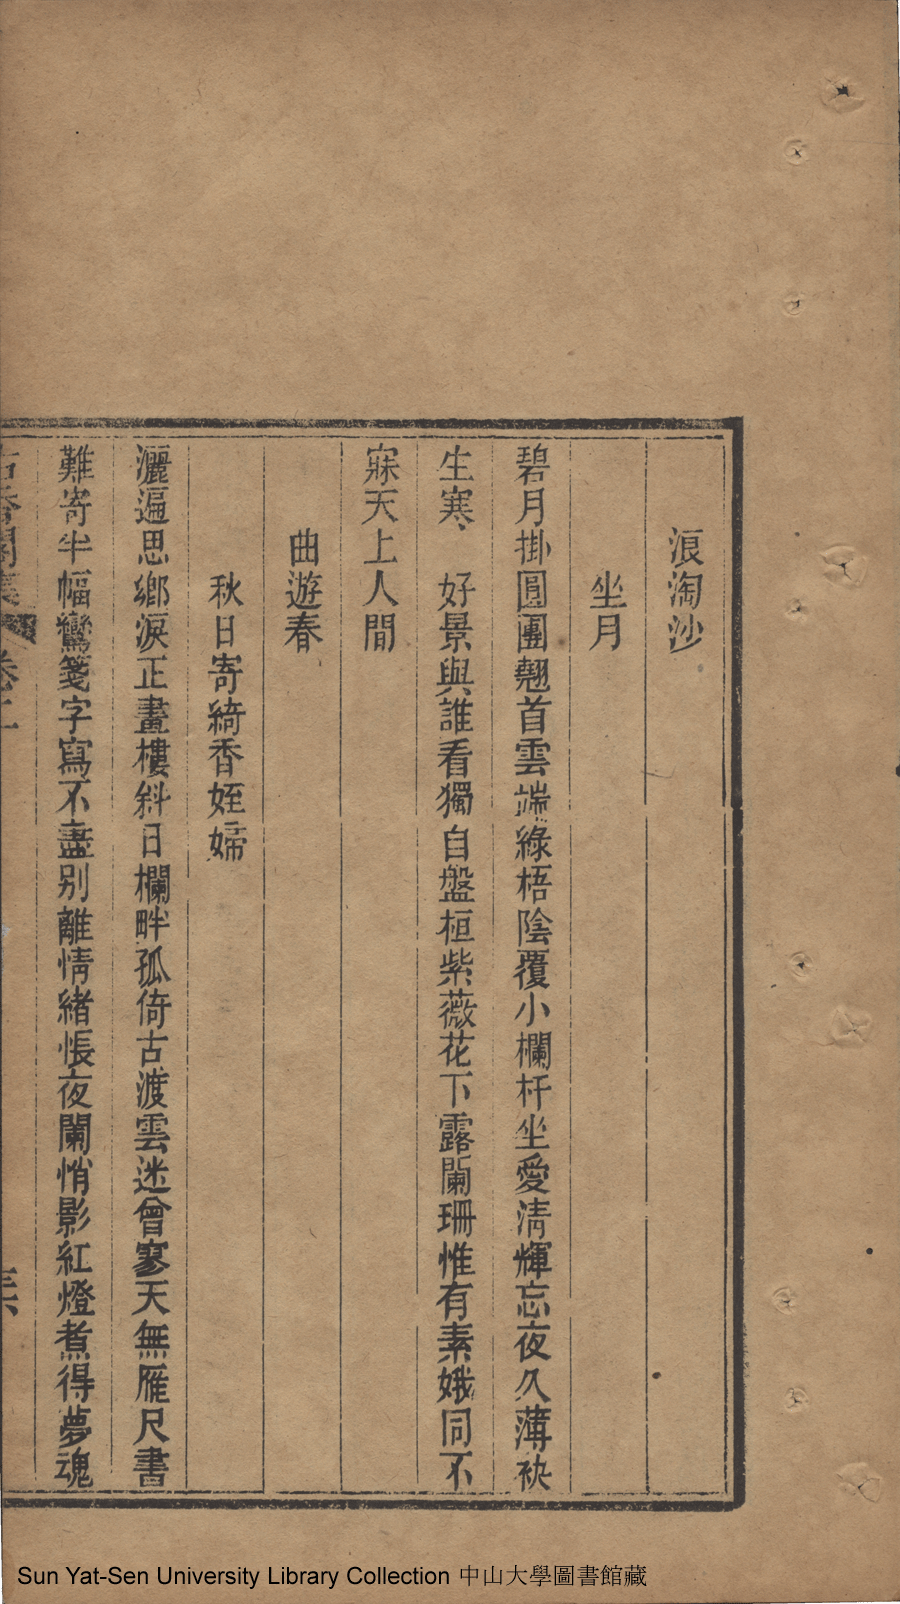 浪淘沙
坐月
碧月掛圓團翹首雲端綠梧陰覆小欄杆坐愛清輝忘夜久薄袂
生寒　好景與誰看獨自盤桓紫薇花下露闌珊惟有素娥同不
寐天上人間
曲遊春
秋日寄綺香姪婦
灑遍思鄉淚正畫樓斜日欄畔孤倚古渡雲迷曾寥天無雁尺書
難寄半幅鸞箋字寫不盡別離情緒悵夜闌悄影紅燈煮得夢魂
古香閣集　卷二
Sun Yat-Sen University Library Collection 中山大學圖書館藏